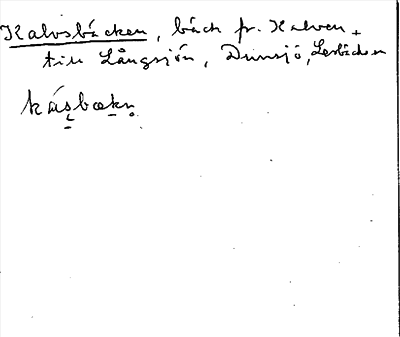 Kalvsbäcken, bäck fr. Kalven
till Långsjön, Dunsjö, Lerbäcken
kásbækn̥